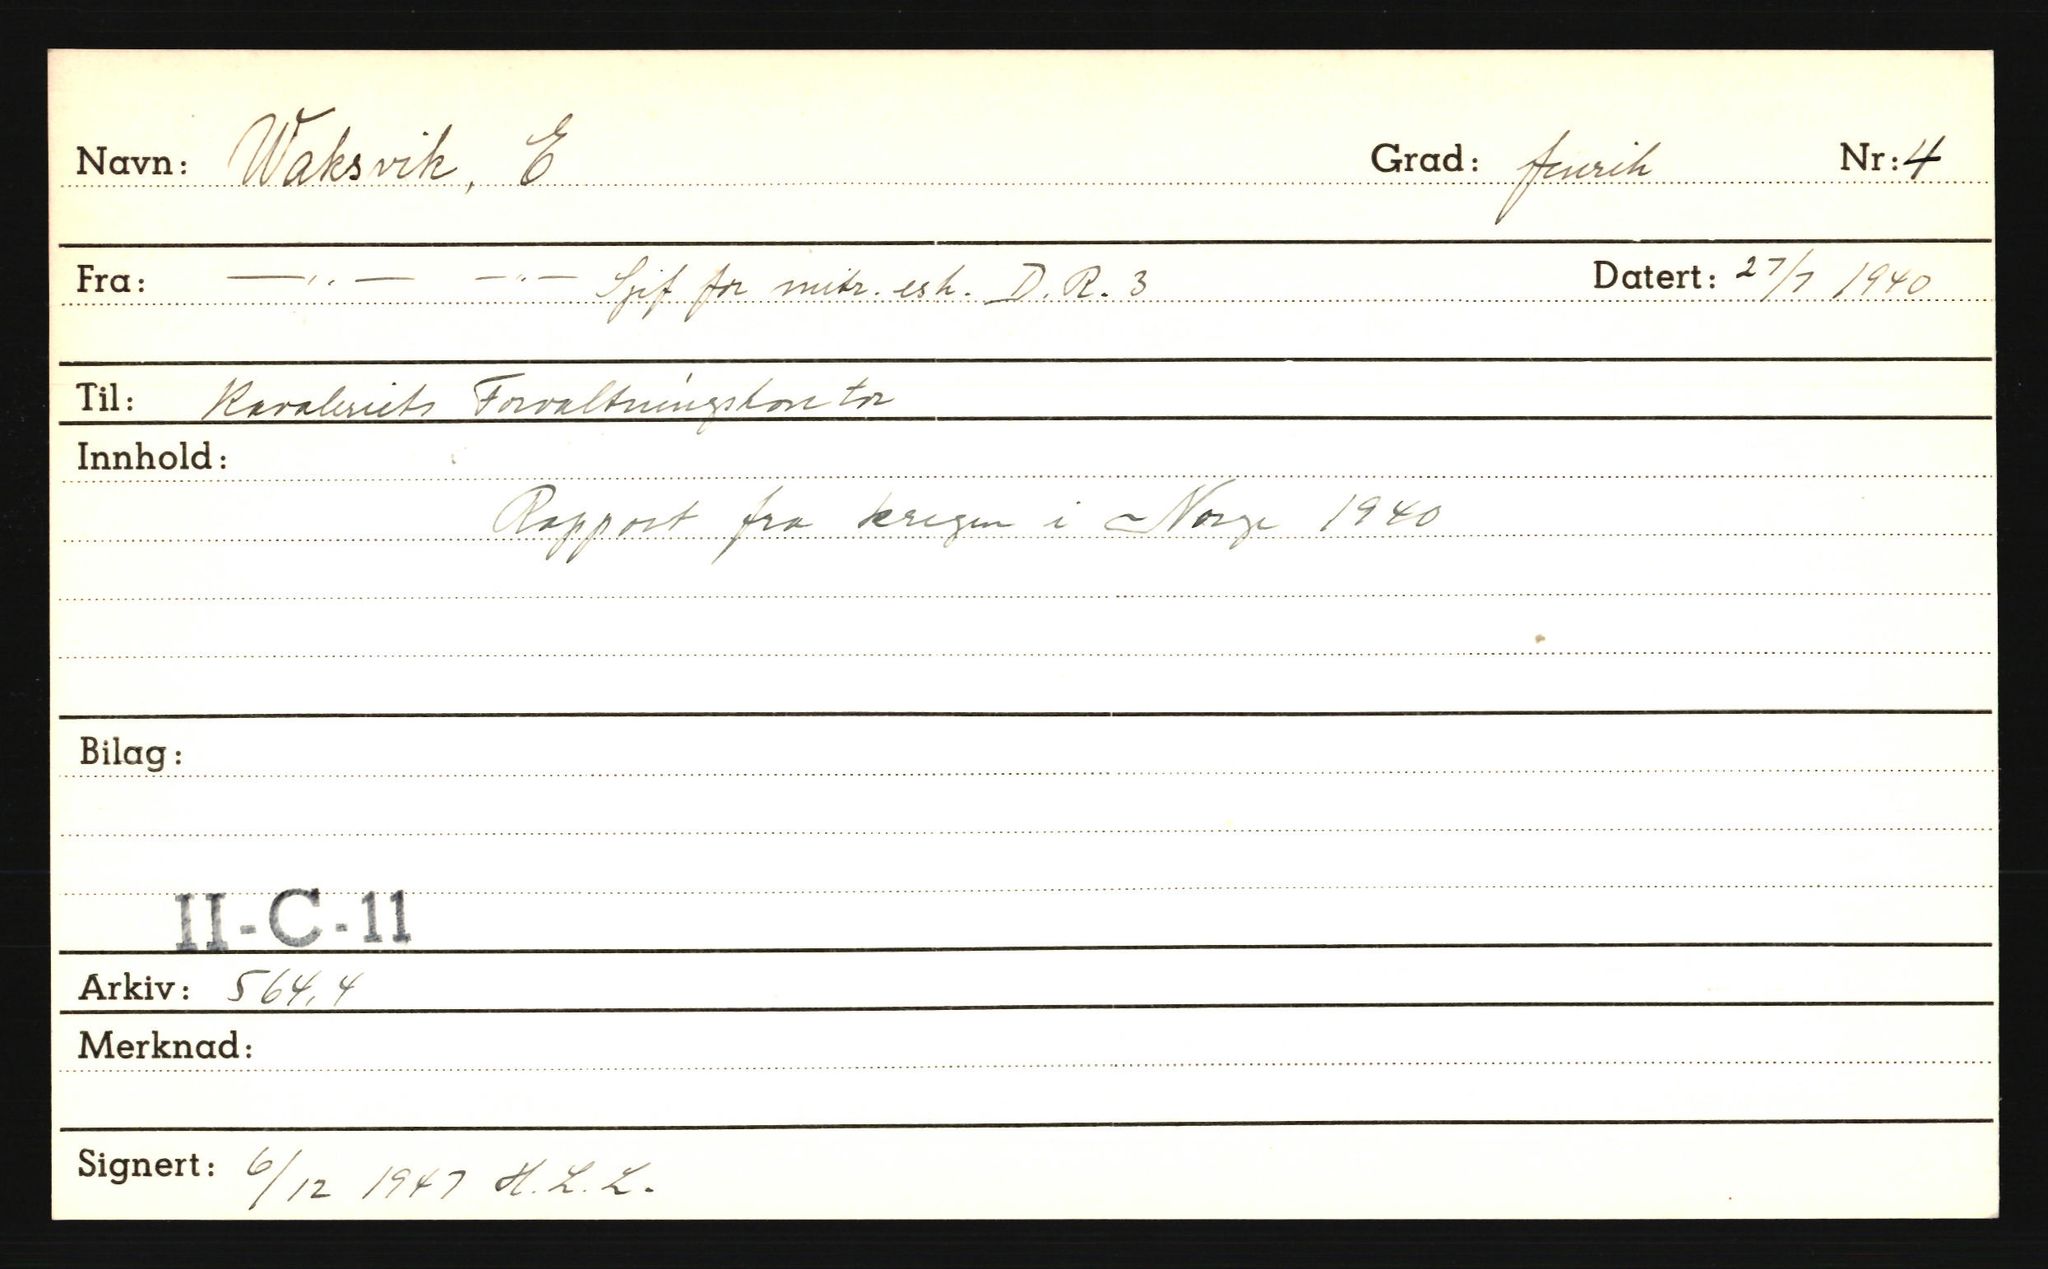 Navn: Waksvik, E Grad: fenrik Nr: 4
Fra: —"— —"— Sjef for mitr. esk. D. R. 3 Datert: 27/7 1940
Til: Kavaleriets Forvaltningskontor
Innhold:
Rapport fra krigen i Norge 1940
Bilag:
II-C-11
Arkiv: 564.4
Merknad:
Signert: 6/12 1947 H.L.L.